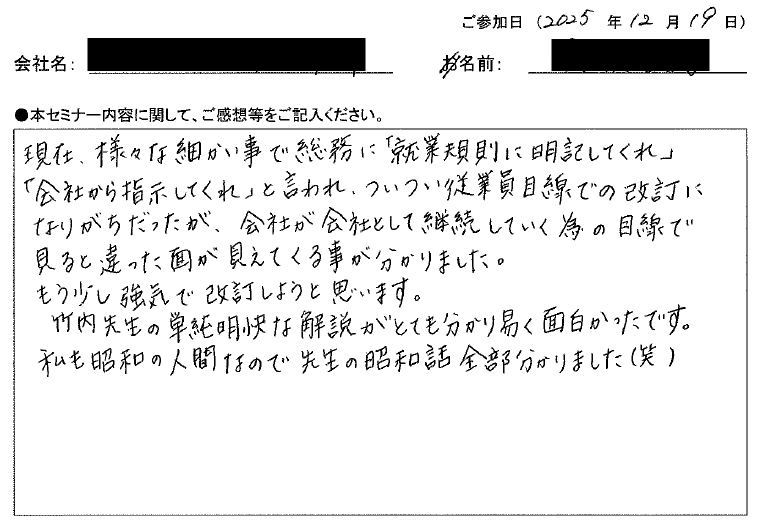 ご参加日 (2025 年 12 月 19 日)
会社名: お名前:
●本セミナー内容に関して、ご感想等をご記入ください。
現在、様々な細かい事で総務に「就業規則に明記してくれ」
「会社から指示してくれ」と言われ、ついつい従業員目線での改訂に
なりがちだったが、会社が会社として継続していく為の目線で
見ると違った面が見えてくる事が分かりました。
もう少し強気で改訂しようと思います。
竹内先生の単純明快な解説がとても分かり易く面白かったです。
私も昭和の人間なので先生の昭和話全部分かりました(笑)